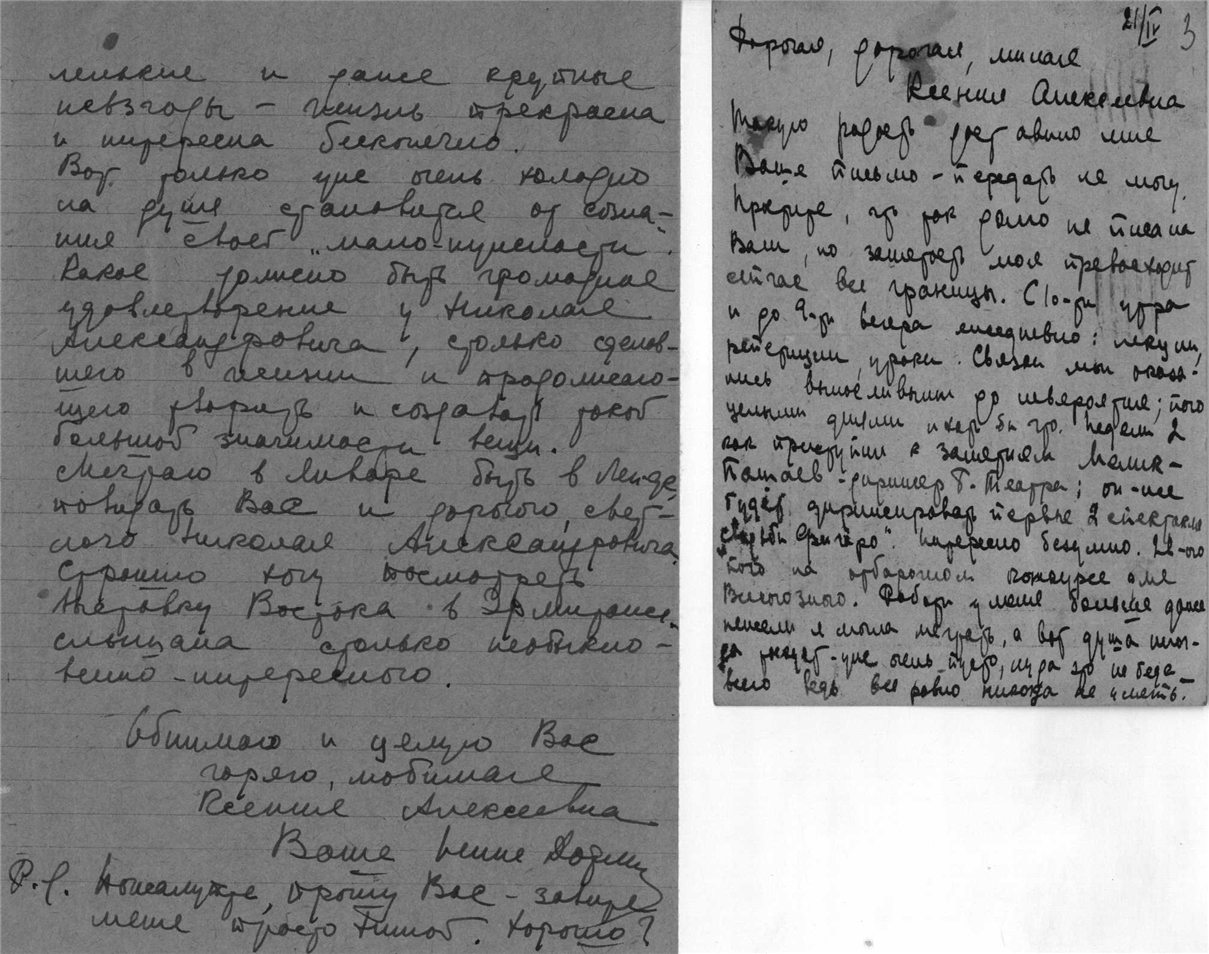 ленькие и даже крупные
невзгоды – жизнь прекрасна
и интересна бесконечно.
Вот только уже очень холодно
на душе становится от созна-
ния своей „мало-нужности".
Какое должно быть громадное
удовлетворение у Николая
Александровича, столько сделав-
шего в жизни и продолжаю-
щего творить и создавать такой
большой значимости вещи.
Мечтаю в Январе быть в Лен-де,
повидать Вас и дорогого, свет-
лого Николая Александровича.
Страшно хочу посмотреть
выставку Востока в Эрмитаже.
слышала столько необыкно-
венно-интересного.
Обнимаю и целую Вас
горячо, любимая
Ксения Алексеевна
Ваша Нина
P.S. Пожалуйста, прошу Вас – зовите
меня просто Ниной. Хорошо?
21/IV 3
Дорогая, дорогая, милая
Ксения Алексеевна
Такую радость доставило мне
Ваше письмо – передать не могу.
Простите, что так долго не писала
Вам, но занятость моя превосходит
сейчас все границы. С 10-ти утра
и до 9-ти вечера ежедневно: лекции,
репетиции, уроки. Связки мои оказа-
лись выносливыми до невероятия; пою
целыми днями и хоть бы что. Недели 2
как приступил к занятиям Мелик-
Пашаев – дирижер Б. Театра; он-же
будет дирижировать первые 2 спектакля
„Свадьбы Фигаро". Интересно безумно. 28-ого
пою на отборочном конкурсе для
Всесоюзного. Работы у меня больше даже
нежели я могла мечтать, а вот душа иног-
да – уже очень пусто, ну да это не беда –
всего ведь все равно никогда не иметь.